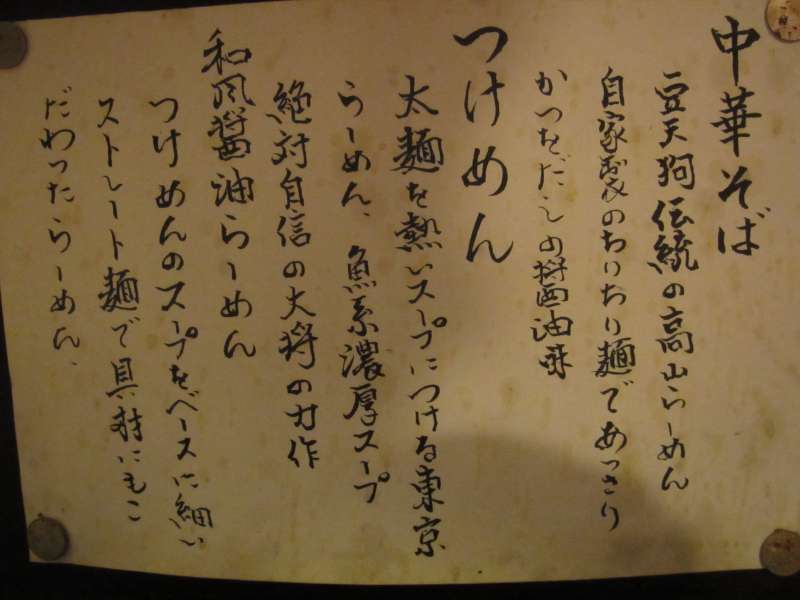 中華そば
豆天狗伝統の高山らーめん
自家製のちりちり麺であっさり
かつをだしの醤油味
つけめん
太麺を熱いスープにつける東京
らーめん、魚系濃厚スープ
絶対自信の大将の力作
和風醤油らーめん
つけめんのスープをベースに細い
ストレート麺で具材にもこ
だわったらーめん、